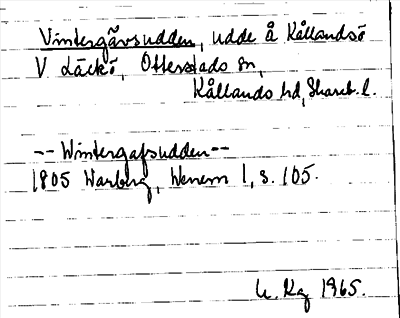 Vintergävsudden, udde å Kållandsö
V Läckö, Otterstads sn,
Kållands hd, Skarab. l.
-- Wintergafsudden --
1805 Warberg, Wenern 1, s. 105.
1965.